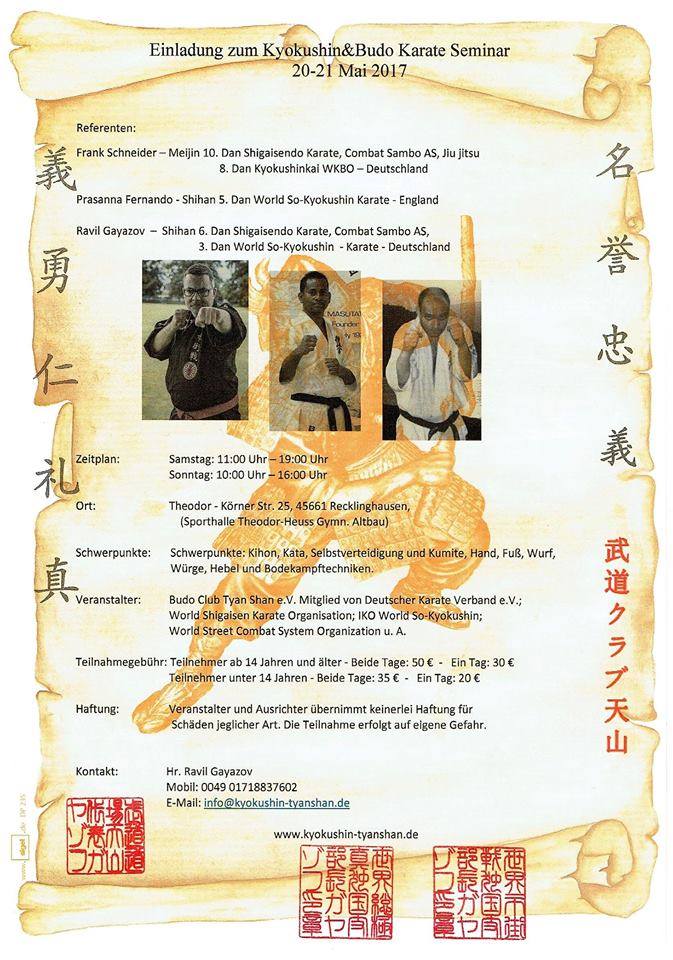 Einladung zum Kyokushin&Budo Karate Seminar
20-21 Mai 2017
Referenten:
Frank Schneider – Meijin 10. Dan Shigaisendo Karate, Combat Sambo AS, Jiu jitsu
8. Dan Kyokushinkai WKBO – Deutschland
Prasanna Fernando - Shihan 5. Dan World So-Kyokushin Karate - England
Ravil Gayazov – Shihan 6. Dan Shigaisendo Karate, Combat Sambo AS,
3. Dan World So-Kyokushin - Karate - Deutschland
MASUTAT
Founder
Zeitplan: Samstag: 11:00 Uhr – 19:00 Uhr
Sonntag: 10:00 Uhr – 16:00 Uhr
Ort: Theodor - Körner Str. 25, 45661 Recklinghausen,
(Sporthalle Theodor-Heuss Gymn. Altbau)
Schwerpunkte: Schwerpunkte: Kihon, Kata, Selbstverteidigung und Kumite, Hand, Fuß, Wurf,
Würge, Hebel und Bodekampftechniken.
Veranstalter: Budo Club Tyan Shan e.V. Mitglied von Deutscher Karate Verband e.V.;
World Shigaisen Karate Organisation; IKO World So-Kyokushin;
World Street Combat System Organization u. A.
Teilnahmegebühr: Teilnehmer ab 14 Jahren und älter - Beide Tage: 50 € - Ein Tag: 30 €
Teilnehmer unter 14 Jahren - Beide Tage: 35 € - Ein Tag: 20 €
Haftung: Veranstalter und Ausrichter übernimmt keinerlei Haftung für
Schäden jeglicher Art. Die Teilnahme erfolgt auf eigene Gefahr.
Kontakt: Hr. Ravil Gayazov
Mobil: 0049 01718837602
E-Mail: info@kyokushin-tyanshan.de
www.kyokushin-tyanshan.de
義勇仁礼真
名誉忠義
武道クラブ天山
www.sigel.de DP 235